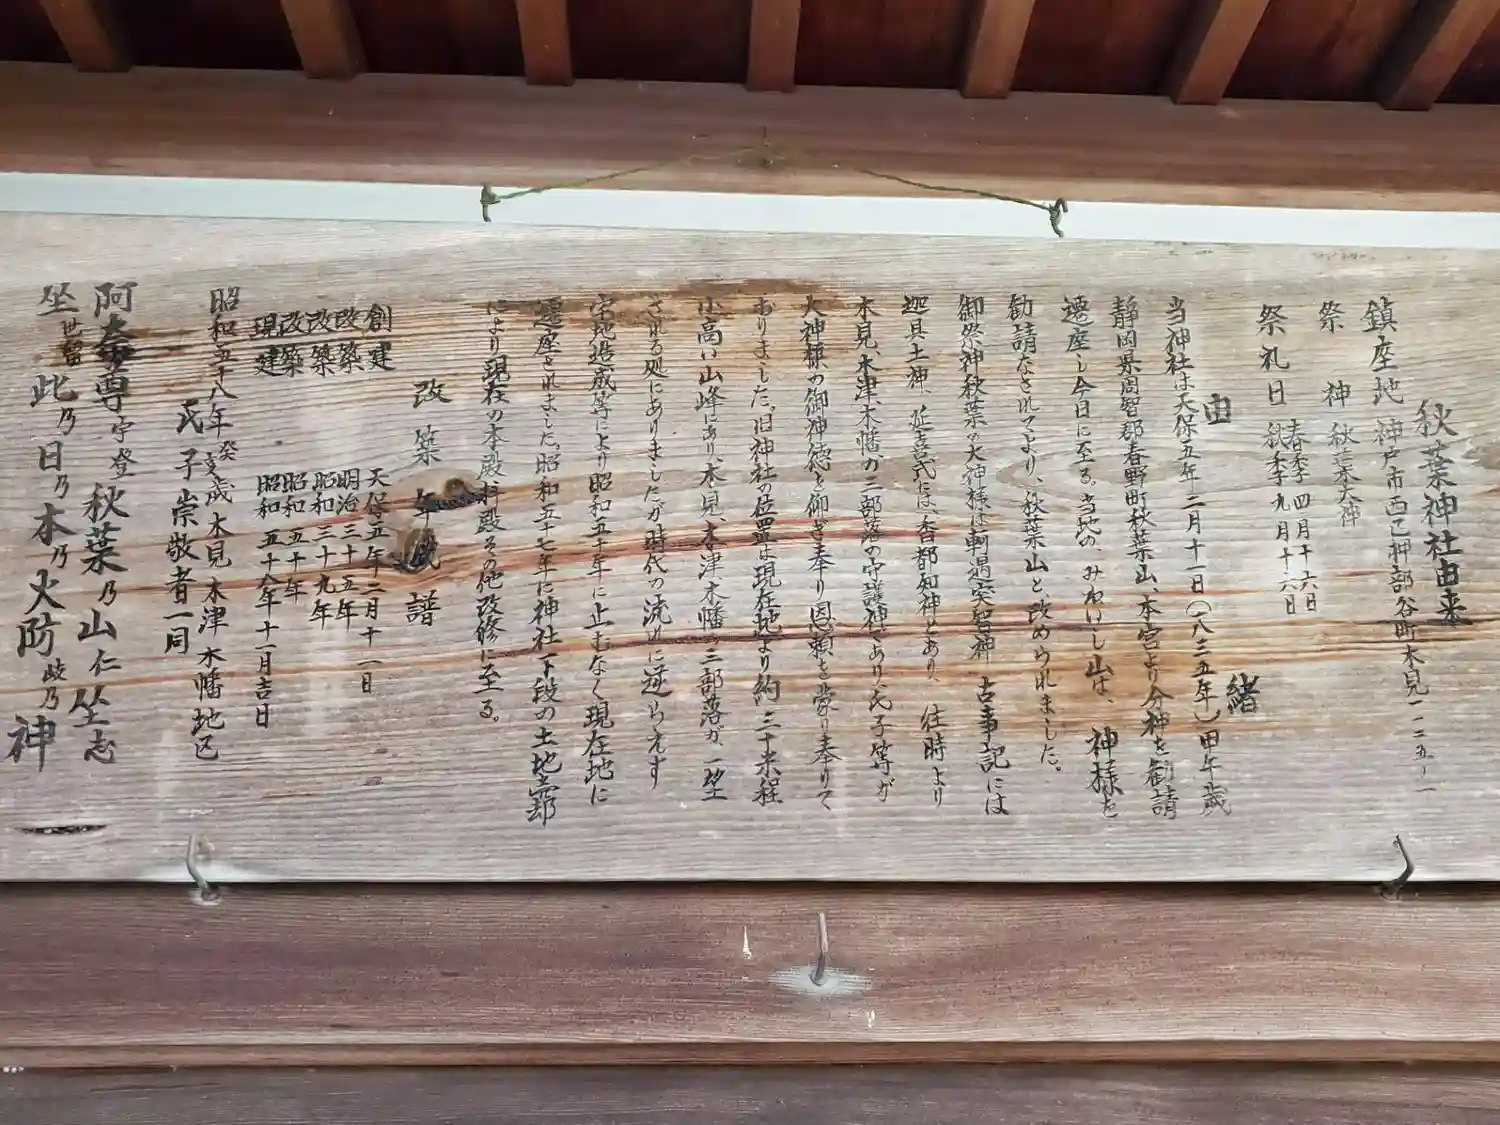 秋葉神社由来
鎮座地 神戸市西区押部谷町木見一一二五ノ一
祭神 秋葉大神
祭礼日 春季四月十六日
秋季九月十六日
由緒
当神社は天保五年二月十一日(一八三五年)甲午歳
静岡県周智郡春野町秋葉山、本宮より分神を勧請
遷座し今日に至る。当地の、みねいし山は、神様を
勧請なされてより、秋葉山と、改められました。
御祭神秋葉の大神様は軻遇突智神 古事記には
迦具土神、延喜式には、香都知神とあり、往時より
木見、木津木幡が三部落の守護神であり、氏子等が
大神様の御神徳を仰ぎ奉り恩頼を蒙り奉りて
おりました。旧神社の位置は現在地より約三十米程
小高い山峰にあり、木見、木津木幡の三部落が、一望
される処にありましたが時代の流れに逆らえず
宅地造成等により昭和五十年に止むなく現在地に
遷座されました。昭和五十七年に神社下段の土地売却
により現在の本殿拝殿その他改修に至る。
改築年代譜
創建 天保五年二月十一日
改築 明治三十五年
改築 昭和三十九年
改築 昭和五十年
現建 昭和五十八年十一月吉日
昭和五十八年癸亥歳 木見 木津 木幡地区
氏子崇敬者一同
阿奈尊守登 秋葉乃山仁坐志
坐世留 此乃日乃本乃火防岐乃神